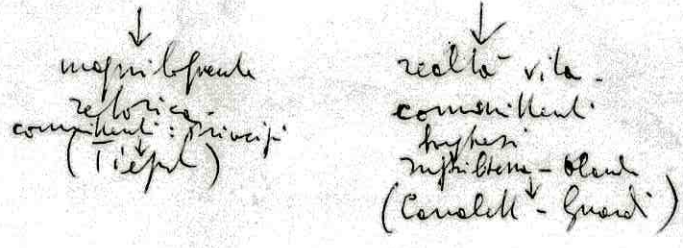 magniloquente
retorica
committenti: principi
(Tiepol)
realtà vita
committenti
borghesi
Inghilterra - Olanda
(Canalett - Guardi)